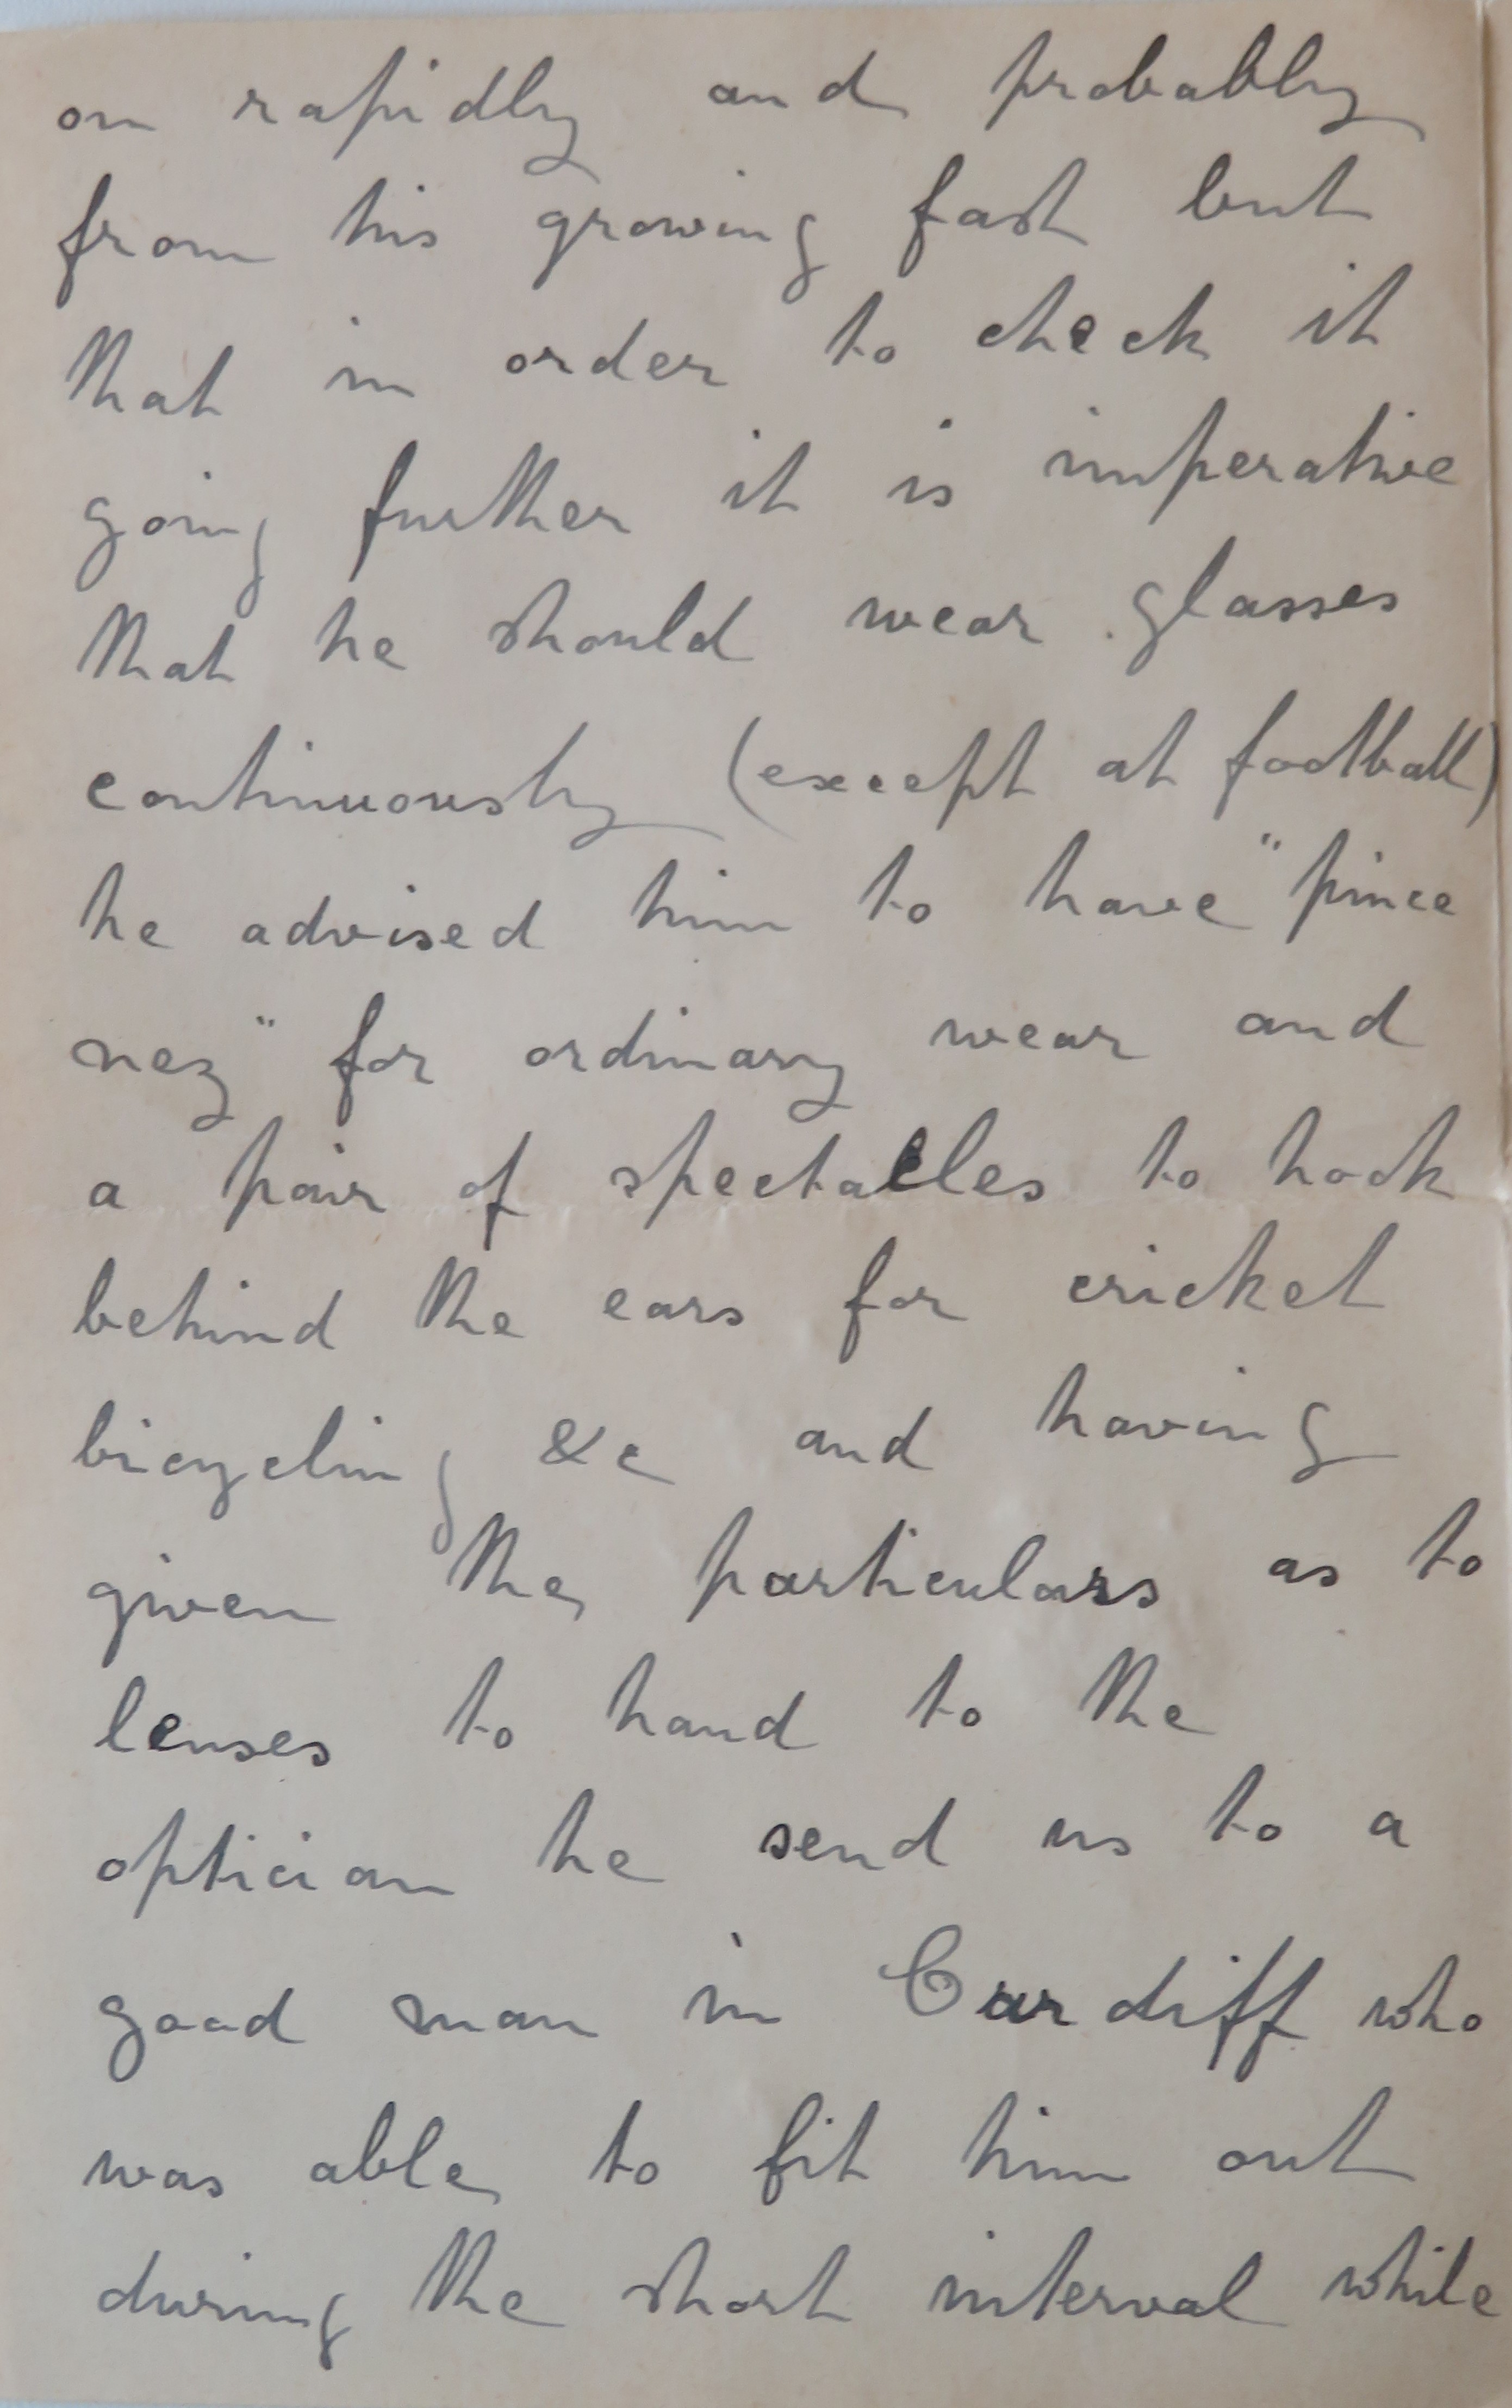 on rapidly and probably
from his growing fast but
that in order to check it
going further it is imperative
that he should wear glasses
continuously (except at football)
he advised him to have "pince
nez" for ordinary wear and
a pair of spectacles to hook
behind the ears for cricket
bicycling &c and having
given the particulars as to
lenses to hand to the
optician he send us to a
good man in Cardiff who
was able to fit him out
during the short interval while